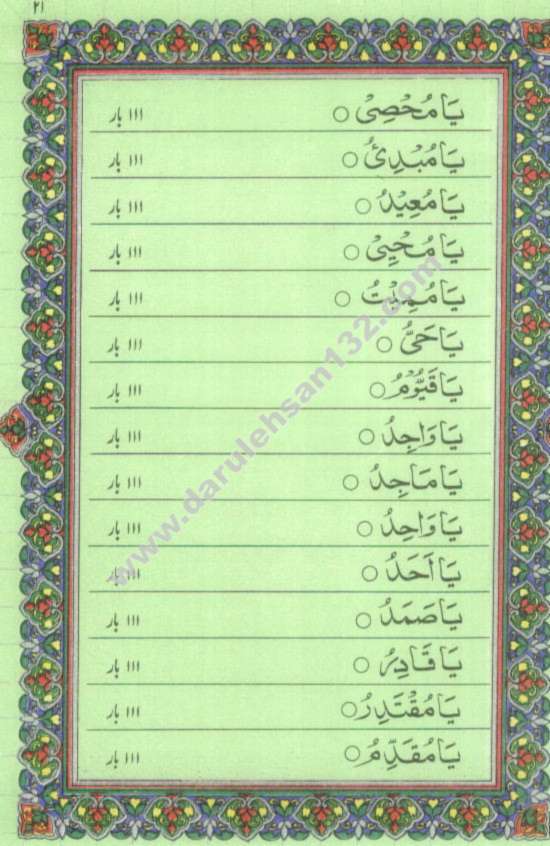 ۲۱
يَا مُحْصِىْ ○ ۱۱۱ بار
يَا مُبْدِئُ ○ ۱۱۱ بار
يَا مُعِيْدُ ○ ۱۱۱ بار
يَا مُحْيِىْ ○ ۱۱۱ بار
يَا مُمِيْتُ ○ ۱۱۱ بار
يَا حَىُّ ○ ۱۱۱ بار
يَا قَيُّوْمُ ○ ۱۱۱ بار
يَا وَاجِدُ ○ ۱۱۱ بار
يَا مَاجِدُ ○ ۱۱۱ بار
يَا وَاحِدُ ○ ۱۱۱ بار
يَا اَحَدُ ○ ۱۱۱ بار
يَا صَمَدُ ○ ۱۱۱ بار
يَا قَادِرُ ○ ۱۱۱ بار
يَا مُقْتَدِرُ ○ ۱۱۱ بار
يَا مُقَدِّمُ ○ ۱۱۱ بار
www.darulehsan132.com